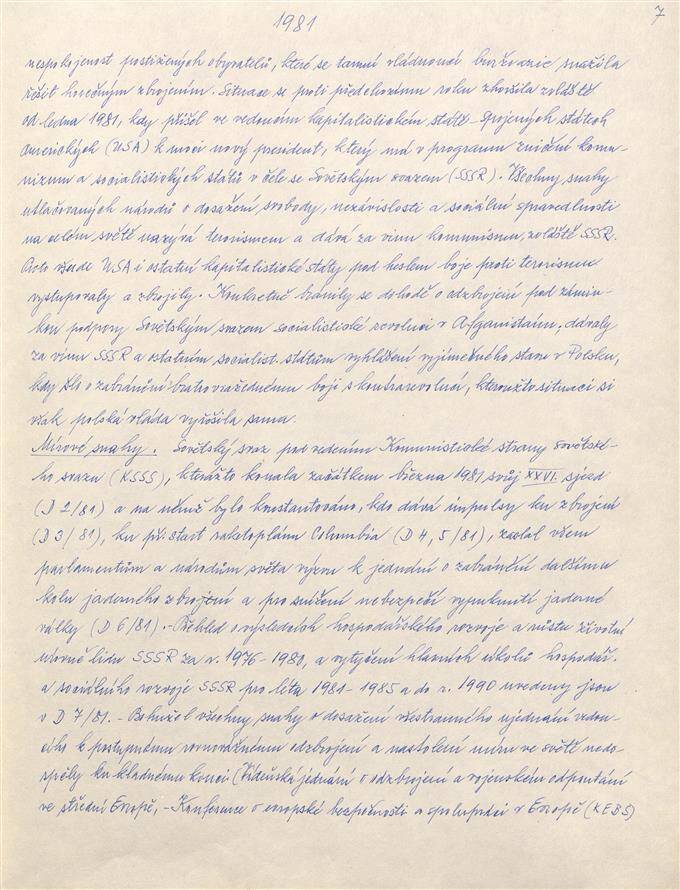 1981
7
nespokojenost postižených obyvatelů, které se tamní vládnoucí buržoazie snažila
řešit horečným zbrojením. Situace se proti předchozímu roku zhoršila zvláště
od ledna 1981, kdy přišel ve vedoucím kapitalistickém státě - Spojených státech
amerických (USA) k moci nový president, který má v programu zničení komu-
nizmu a socialistických států v čele se Sovětským svazem (SSSR). Všechny snahy
utlačovaných národů o dosažení svobody, nezávislosti a sociální spravedlnosti
na celém světě nazývá terorismem a dává za vinu komunismu, zvláště SSSR.
Proto všude USA i ostatní kapitalistické státy pod heslem boje proti terorismu
vystupovaly a zbrojily. Konkretně bránily se dohodě o odzbrojení pod zámin-
kou podpory Sovětským svazem socialistické revoluci v Afganistánu, dávaly
za vinu SSSR a ostatním socialist. státům vyhlášení vyjímečného stavu v Polsku,
kdy šlo o zabránění bratrovražednému boji s kontrarevolucí, kteroužto situaci si
však polská vláda vyřešila sama.
Mírové snahy. Sovětský svaz pod vedením Komunistické strany Sovětské-
ho svazu (KSSS), kterážto konala začátkem března 1981 svůj XXVI. sjezd
(D 2/81) a na němž bylo konstantováno, kdo dává impulsy ku zbrojení
(D 3/81), ku př. start raketoplánu Columbia (D 4, 5/81), zaslal všem
parlamentům a národům světa výzvu k jednání o zabránění dalšímu
kolu jaderného zbrojení a pro snížení nebezpečí vypuknutí jaderné
války (D 6/81). - Přehled o výsledcích hospodářského rozvoje a růstu životní
úrovně lidu SSSR za r. 1976-1980, a vytyčení hlavních úkolů hospodář.
a sociálního rozvoje SSSR pro léta 1981-1985 a do r. 1990 uvedeny jsou
v D 7/81. - Bohužel všechny snahy o dosažení všestranného ujednání vedou-
cího k postupnému rovnovážnému odzbrojení a nastolení míru ve světě nedo-
spěly ku kladnému konci (Vídeňská jednání o odzbrojení a vojenském odpoutání
ve střední Evropě, - Konference o evropské bezpečnosti a spolupráci v Evropě (KEBS)